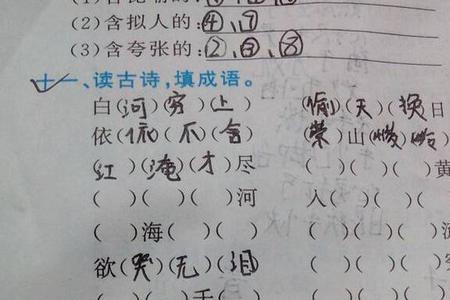 (2)含拟人的:④、⑦
(3)含夸张的:②、⑧
十一、读古诗,填成语。
白(河)(穷)(上) (偷)(天)(换)日
依(依)(不)(舍) ( )山( )( )
( )( )(才)尽 ( )( )( )黄
( )( )( )河 人( )( )( )
( )海( )( ) ( )( )( )
欲(哭)(无)(泪) ( )( )( )
( )千( )